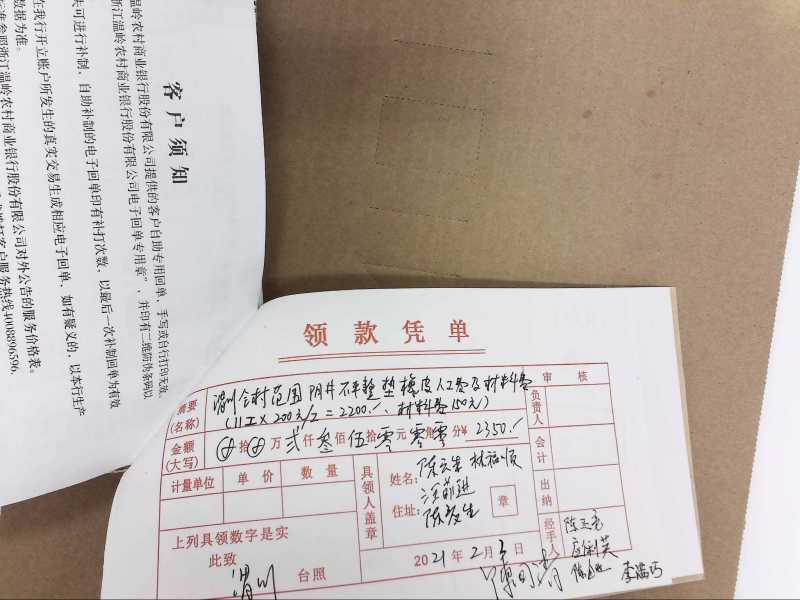 客户须知
温岭农村商业银行股份有限公司提供的客户自助专用回单，手写或自行打印无效，
浙江温岭农村商业银行股份有限公司电子回单专用章"，并印有二维防伪条码以
失可进行补制，自助补制的电子回单印有补打次数，以最后一次补制回单为有效
在我行开立账户所发生的真实交易生成相应电子回单，如有疑义的，以本行生产
数据为准。
标准参照浙江温岭农村商业银行股份有限公司对外公告的服务价格表。
客户服务热线4008896596
领款凭单
摘要
(名称)
村范围 阴井不平整垫橡皮人工费及材料费
(11工×200元/工=2200.-、材料费150元)
审核
负责人
金额
(大写)
拾 万 贰仟叁佰伍拾零元零角零分¥2350.-
会计
计量单位 单价 数量
具领人盖章
姓名: 陈云生 林福顺
住址:
章
出纳
经手人
上列具领数字是实
此致
台照
2021年2月3日